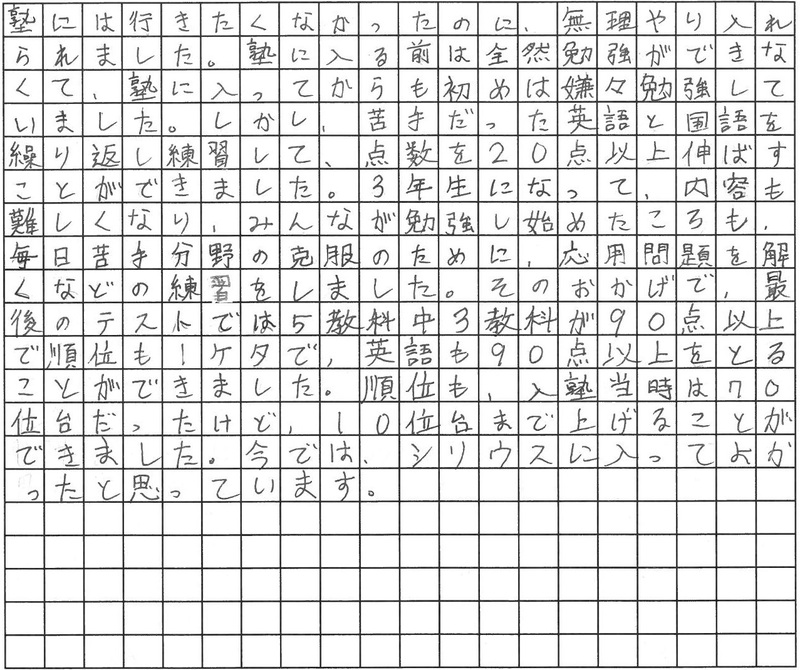 塾には行きたくなかったのに、無理やり入れ
られました。塾に入る前は全然勉強ができな
くて、塾に入ってからも初めは嫌々勉強して
いました。しかし、苦手だった英語と国語を
繰り返し練習して、点数を20点以上伸ばす
ことができました。3年生になって、内容も
難しくなり、みんなが勉強し始めたころも、
毎日苦手分野の克服のために、応用問題を解
くなどの練習をしました。そのおかげで、最
後のテストでは5教科中3教科が90点以上
で順位も1ケタで、英語も90点以上をとる
ことができました。順位も、入塾当時は70
位台だったけど、10位台まで上げることが
できました。今では、シリウスに入ってよか
ったと思っています。